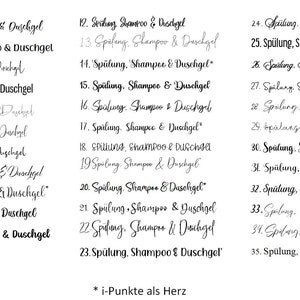 & Duschgel
& Duschgel
Duschgel
Duschgel
Duschgel
Duschgel
Duschgel
& Duschgel
& Duschgel*
Duschgel
& Duschgel
12. Spülung, Shampoo & Duschgel
13. Spülung, Shampoo & Duschgel
14. Spülung, Shampoo & Duschgel*
15. Spülung, Shampoo & Duschgel
16. Spülung, Shampoo & Duschgel
17. Spülung, Shampoo & Duschgel*
18. Spülung, Shampoo & Duschgel
19 Spülung, Shampoo & Duschgel
20. Spülung, Shampoo & Duschgel*
21. Spülung, Shampoo & Duschgel
22. Spülung, Shampoo & Duschgel
23. Spülung, Shampoo & Duschgel*
24. Spülung,
25. Spülung,
26. Spülung,
27. Spülung,
28. Spülung,
29. Spülung,
30. Spülung,
31. Spülung,
32. Spülung,
33. Spülung,
34. Spülung,
35. Spülung,
* i-Punkte als Herz